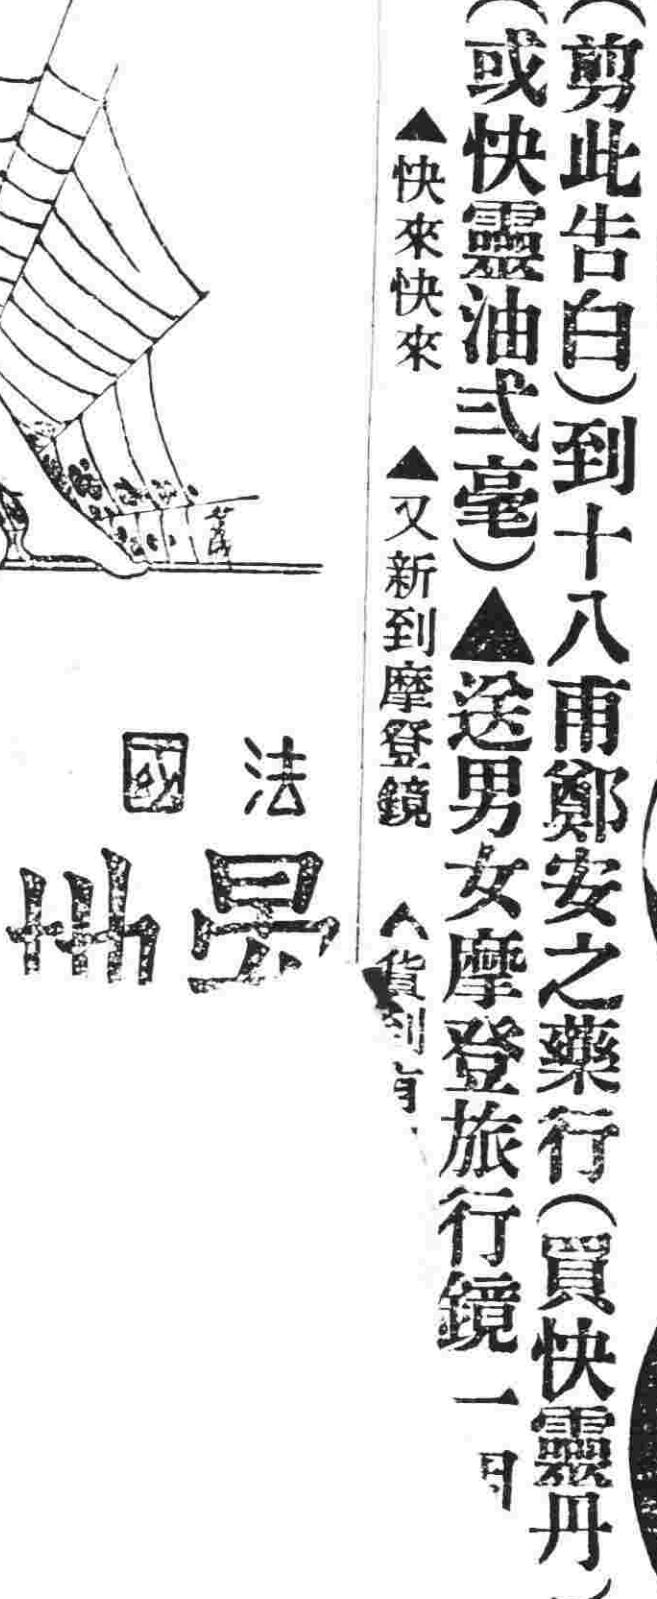 (剪此告白)到十八甫鄭安之藥行(買快靈丹
(或快靈油弍毫)▲送男女摩登旅行鏡一
▲快來快來 ▲又新到摩登鏡 ▲貨到有
法國